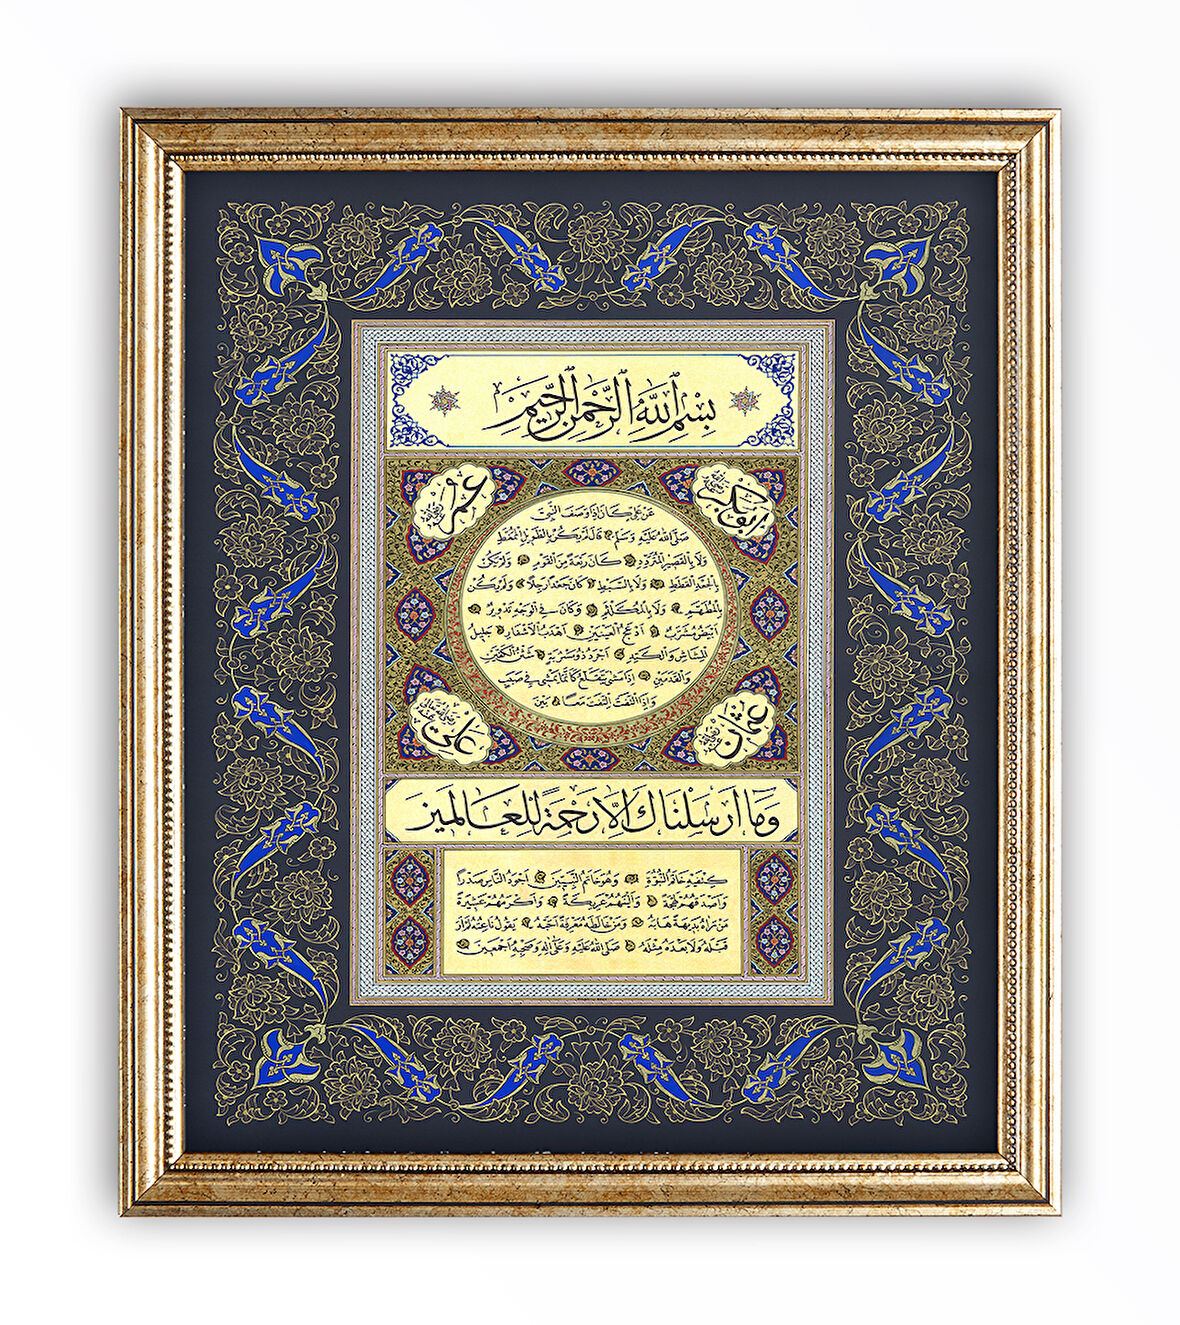 بسم الله الرحمن الرحيم
ابوبكر رضي الله عنه
عمر رضي الله عنه
عن علي كان اذا وصف النبي
صلى الله عليه وسلم قال لم يكن بالطويل الممغط
ولا بالقصير المتردد كان ربعة من القوم ولم يكن
بالجعد القطط ولا بالسبط كان جعدا رجلا ولم يكن
بالمطهم ولا بالمكلثم وكان في الوجه تدوير
ابيض مشرب ادعج العينين اهدب الاشفار جليل
المشاش والكتد اجرد ذومسربة شثن الكفين
والقدمين اذا مشى يتقلع كانما يمشي في صبب
واذا التفت التفت معا بين
عثمان رضي الله عنه
علي رضي الله عنه
وما ارسلناك الا رحمة للعالمين
كتفيه خاتم النبوة وهو خاتم النبيين اجود الناس صدرا
واصدقهم لهجة والينهم عريكة واكرمهم عشيرة
من رآه بديهة هابه ومن خالطه معرفة احبه يقول ناعته لم ار
قبله ولا بعده مثله صلى الله عليه وعلى اله وصحبه اجمعين